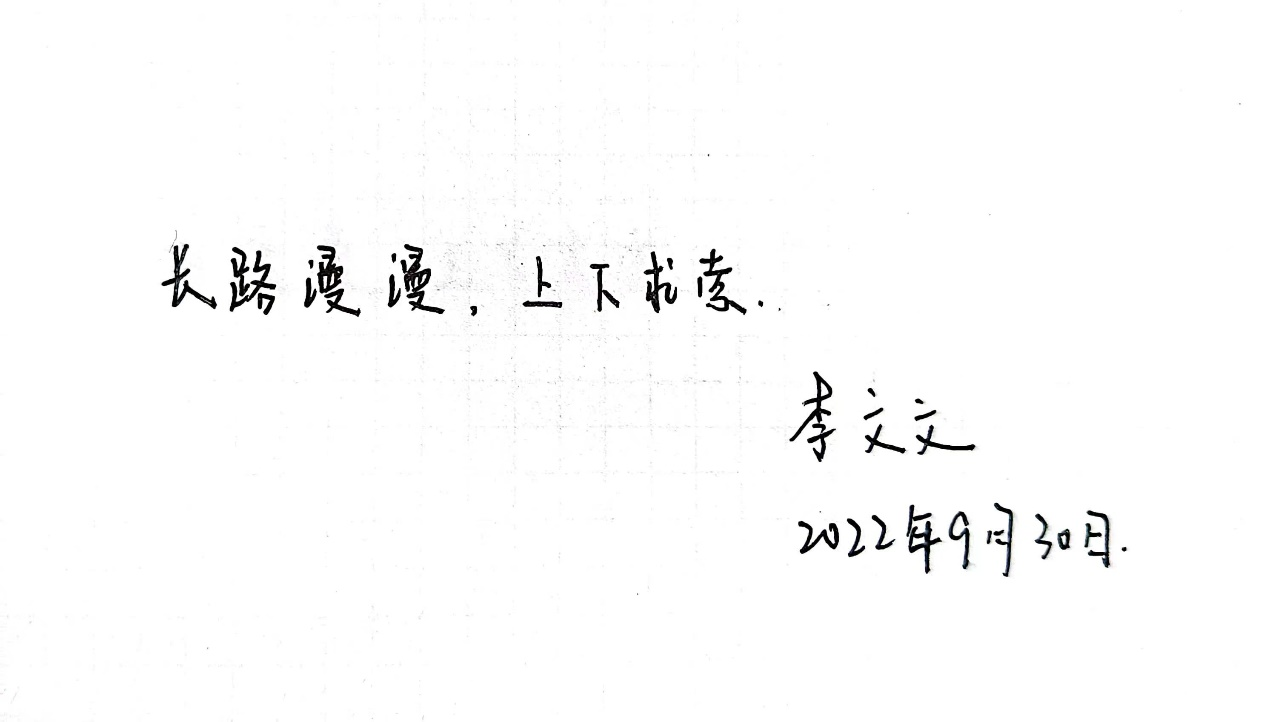 长路漫漫，上下求索.
李文文
2022年9月30日.